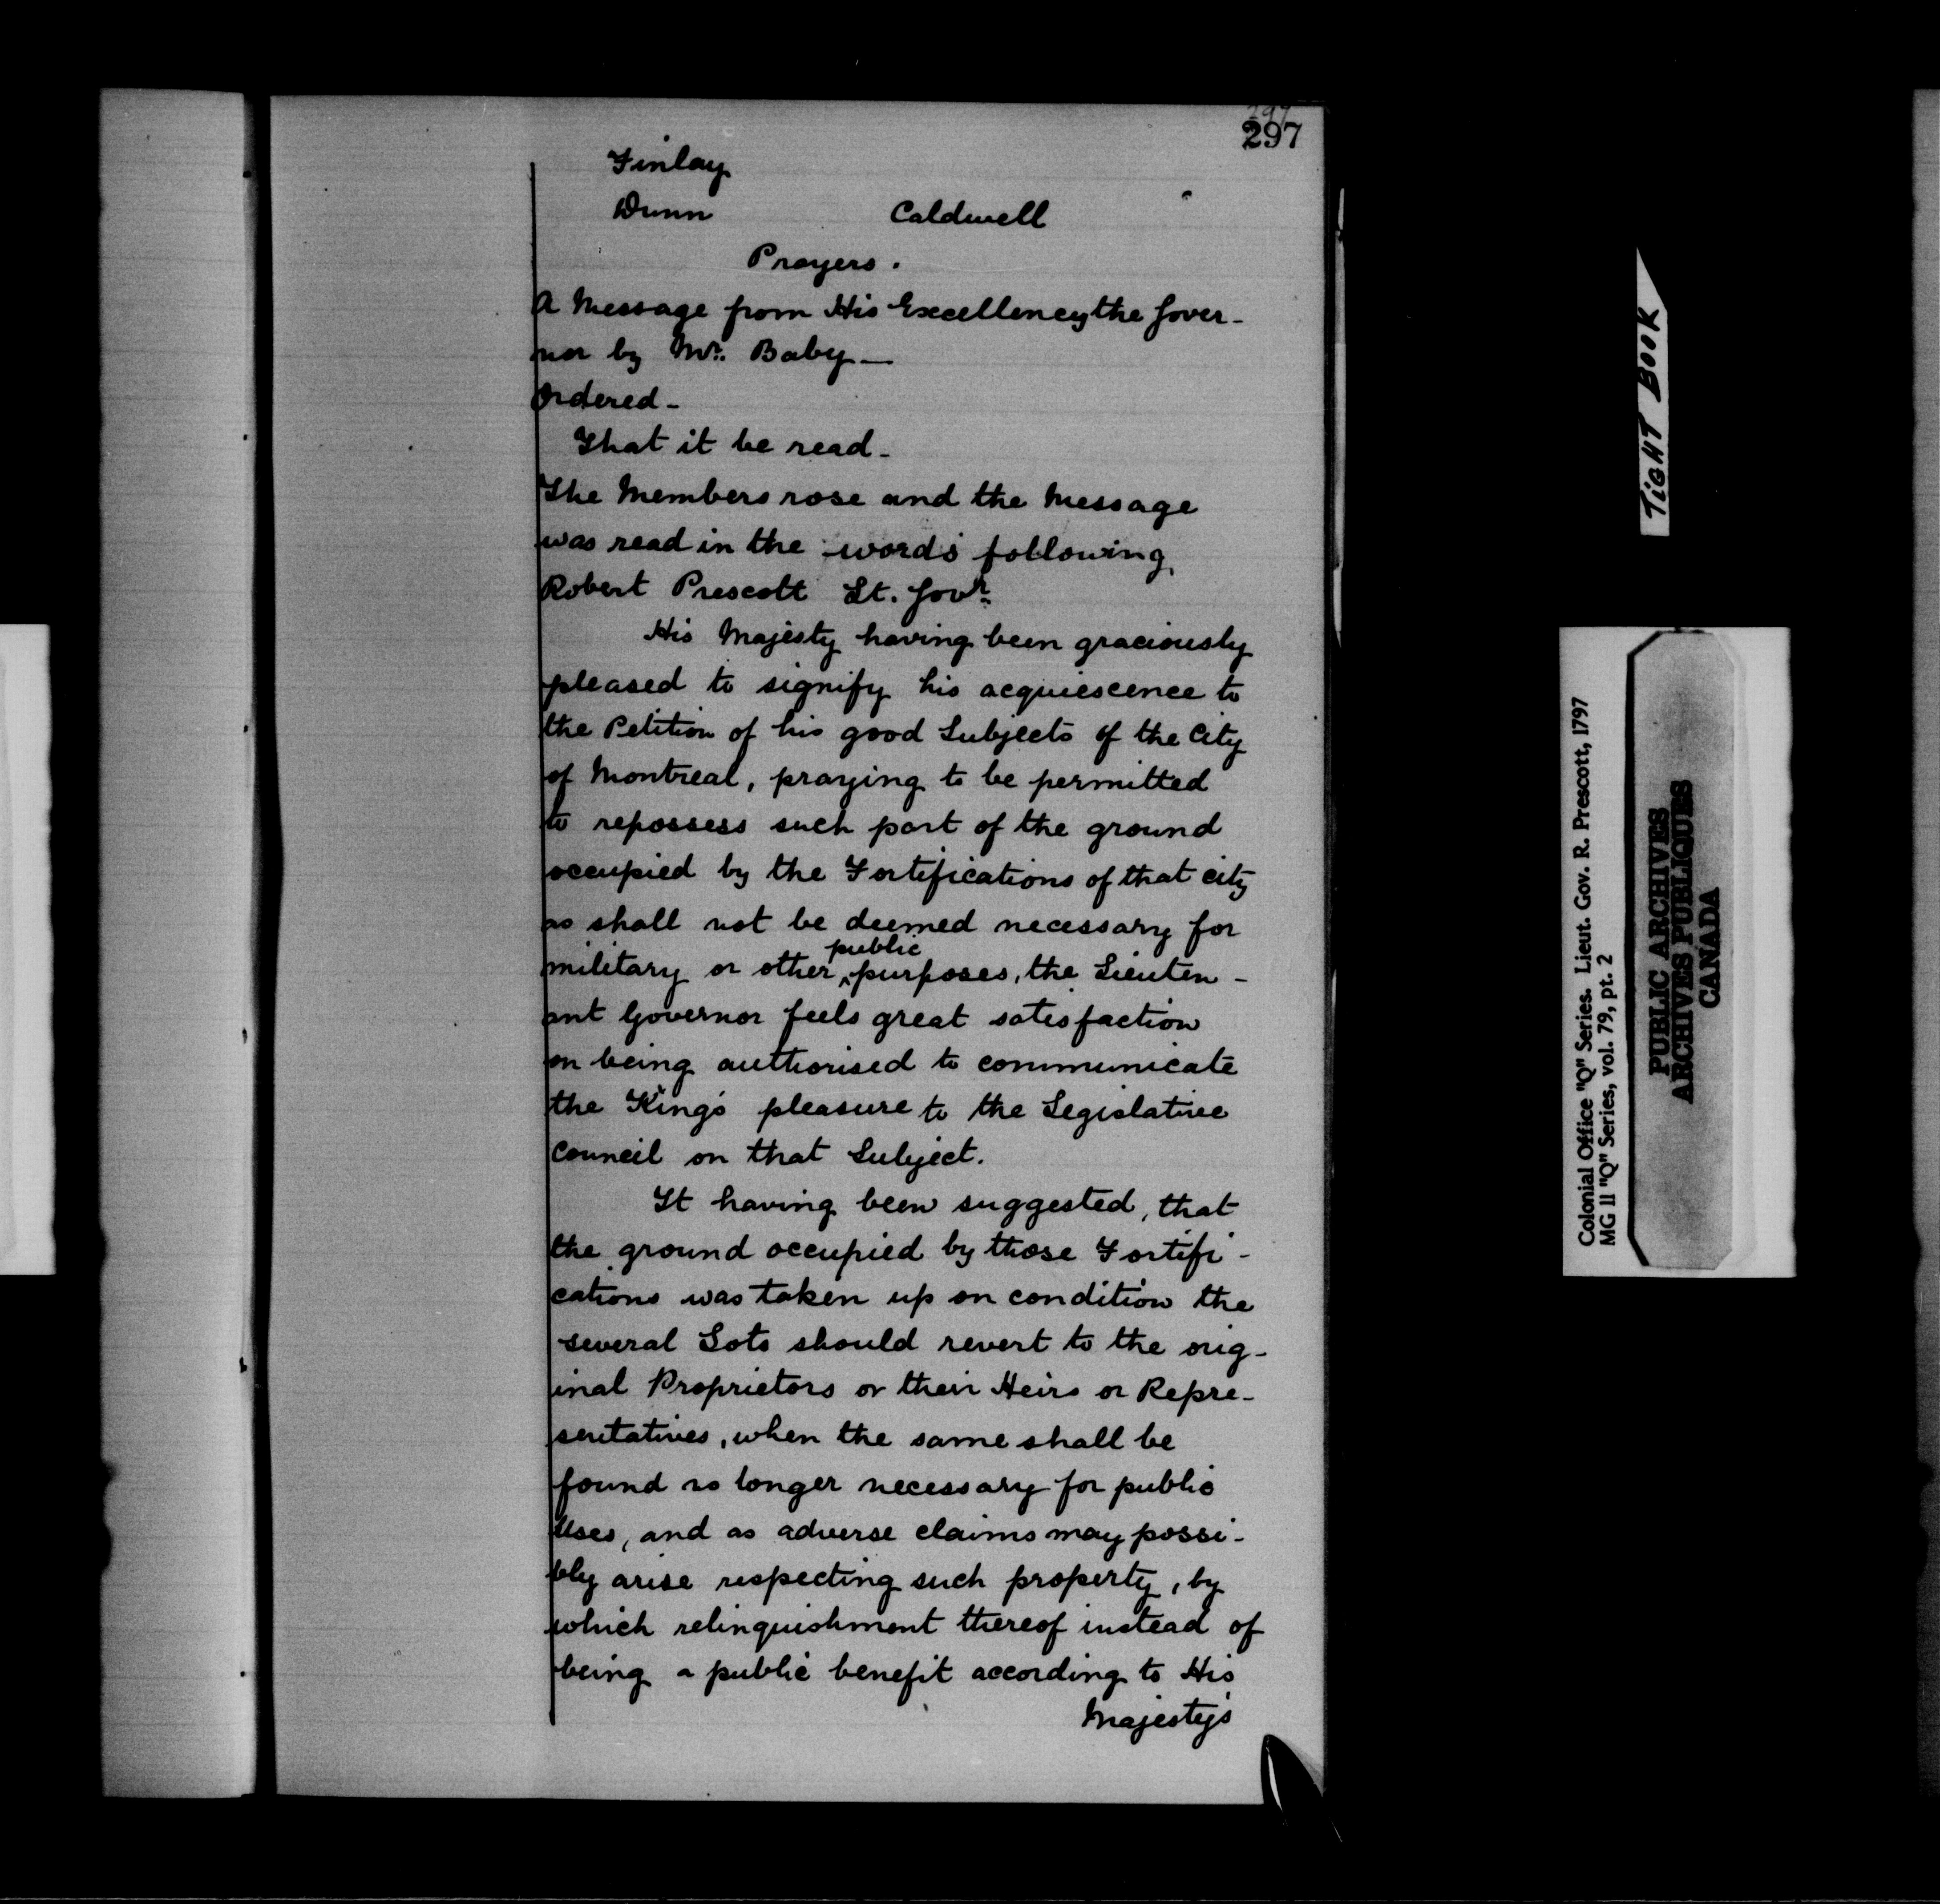 297
297
Finlay
Dunn Caldwell
Prayers.
A Message from His Excellency the Gover-
nor by Mr. Baby—
Ordered-
That it be read-
The Members rose and the Message
was read in the words following
Robert Prescott Lt. Govr.
His Majesty having been graciously
pleased to signify his acquiescence to
the Petition of his good Subjects of the City
of Montreal, praying to be permitted
to repossess such part of the ground
occupied by the Fortifications of that city
as shall not be deemed necessary for
military or other public purposes, the Lieuten-
ant Governor feels great satisfaction
on being authorised to communicate
the King's pleasure to the Legislative
Council on that Subject.
It having been suggested, that
the ground occupied by those Fortifi-
cations was taken up on condition the
several Lots should revert to the orig-
inal Proprietors or their Heirs or Repre-
sentatives, when the same shall be
found no longer necessary for public
Uses, and as adverse claims may possi-
bly arise respecting such property, by
which relinquishment thereof instead of
being a public benefit according to His
Majesty's
TIGHT BOOK
Colonial Office "Q" Series. Lieut. Gov. R. Prescott, 1797
MG II "Q" Series, vol. 79, pt. 2
PUBLIC ARCHIVES
ARCHIVES PUBLIQUES
CANADA